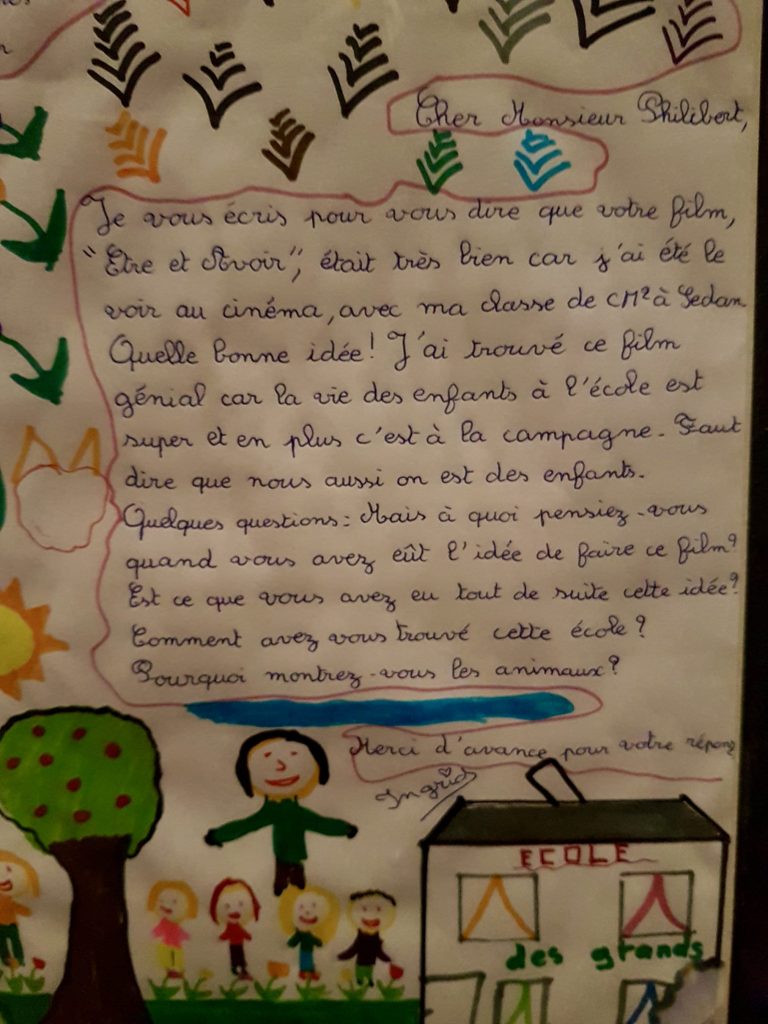 Cher Monsieur Philibert,
Je vous écris pour vous dire que votre film,
"Etre et Avoir", était très bien car j'ai été le
voir au cinéma, avec ma classe de CM2 à Sedan
Quelle bonne idée! J'ai trouvé ce film
génial car la vie des enfants à l'école est
super et en plus c'est à la campagne. Faut
dire que nous aussi on est des enfants.
Quelques questions: Mais à quoi pensiez-vous
quand vous avez eût l'idée de faire ce film?
Est ce que vous avez eu tout de suite cette idée?
Comment avez vous trouvé cette école?
Pourquoi montrez-vous les animaux?
Merci d'avance pour votre
Ingrid
ECOLE
des grands